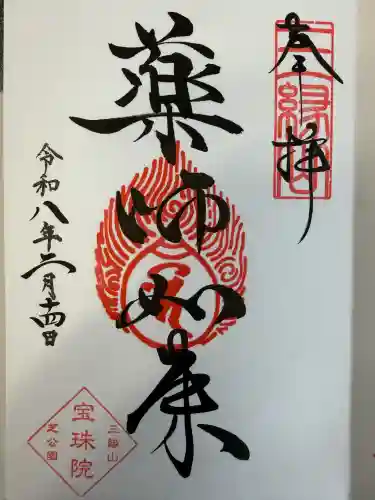 奉拝
薬師如来
令和八年二月十四日
三縁山
宝珠院
芝公園